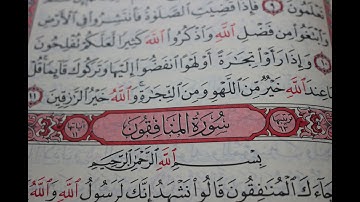 تَعْلَمُونَ ۝٩ فَإِذَا قُضِيَتِ الصَّلَوٰةُ فَانتَشِرُوا فِي الْأَرْضِ
وَابْتَغُوا مِن فَضْلِ اللَّهِ وَاذْكُرُوا اللَّهَ كَثِيرًا لَّعَلَّكُمْ تُفْلِحُونَ
۝١٠ وَإِذَا رَأَوْا تِجَٰرَةً أَوْ لَهْوًا انفَضُّوا إِلَيْهَا وَتَرَكُوكَ قَائِمًا قُلْ
مَا عِندَ اللَّهِ خَيْرٌ مِّنَ اللَّهْوِ وَمِنَ التِّجَٰرَةِ وَاللَّهُ خَيْرُ الرَّٰزِقِينَ ۝١١
سُورَةُ الْمُنَافِقُونَ
بِسْمِ اللَّهِ الرَّحْمَٰنِ الرَّحِيمِ
جَاءَكَ الْمُنَٰفِقُونَ قَالُوا نَشْهَدُ إِنَّكَ لَرَسُولُ اللَّهِ وَاللَّهُ